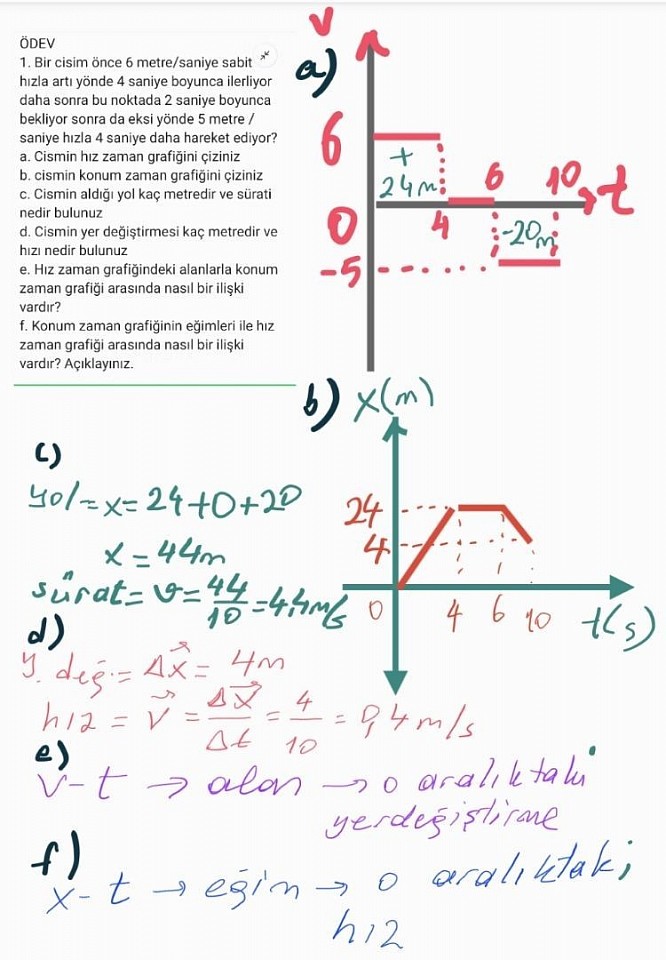 ÖDEV
1. Bir cisim önce 6 metre/saniye sabit
hızla artı yönde 4 saniye boyunca ilerliyor
daha sonra bu noktada 2 saniye boyunca
bekliyor sonra da eksi yönde 5 metre /
saniye hızla 4 saniye daha hareket ediyor?
a. Cismin hız zaman grafiğini çiziniz
b. cismin konum zaman grafiğini çiziniz
c. Cismin aldığı yol kaç metredir ve sürati
nedir bulunuz
d. Cismin yer değiştirmesi kaç metredir ve
hızı nedir bulunuz
e. Hız zaman grafiğindeki alanlarla konum
zaman grafiği arasında nasıl bir ilişki
vardır?
f. Konum zaman grafiğinin eğimleri ile hız
zaman grafiği arasında nasıl bir ilişki
vardır? Açıklayınız.
a)
v
6
+
24m
6
10
t
0
4
-20m
-5
b) x(m)
24
4
0
4
6
10
t(s)
c)
yol = x = 24+0+20
x = 44m
sürat = v = 44/10 = 4,4m/s
d)
y. değ. = Δx⃗ = 4m
hız = v⃗ = Δx⃗/Δt = 4/10 = 0,4 m/s
e)
v-t → alan → o aralıktaki
yerdeğiştirme
f)
x-t → eğim → o aralıktaki
hız